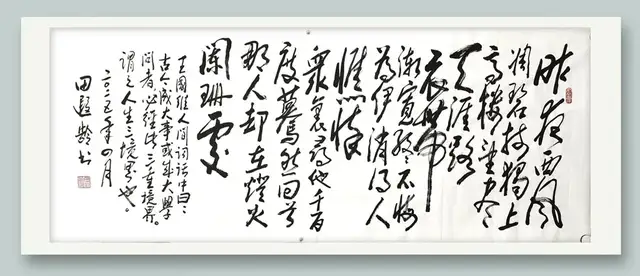 昨夜西风
凋碧树獨上
高楼望尽
天涯路
衣带
渐寬终不悔
為伊消得人
憔悴
衆裏尋他千百
度蓦然回首
那人却在燈火
阑珊處
王國维人间词话中曰:
古今成大事或成大學
问者必经此三重境界。
谓之人生三境界也。
二〇一五年四月
田遐龄书